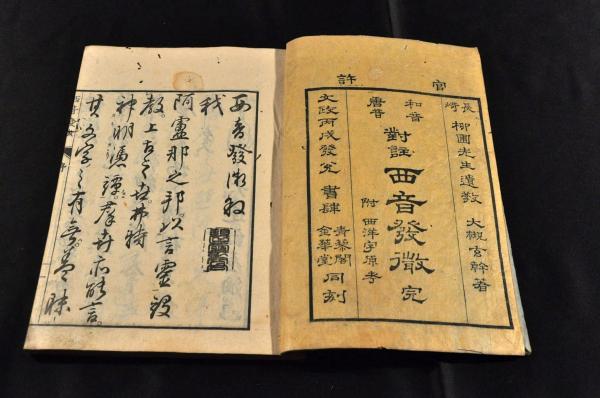 官許
長崎 柳圃先生遺教 大槻玄幹著
和音
唐音
對註
西音發微 完
附 西洋字原考
文政丙戌發兌 書肆 青藜閣 金華堂 同刻
西音發微叙
我
阿盧那之邦以言靈設
教上古之世弗特
神明憑譚群卉亦能言
其文字之有無蓋昧